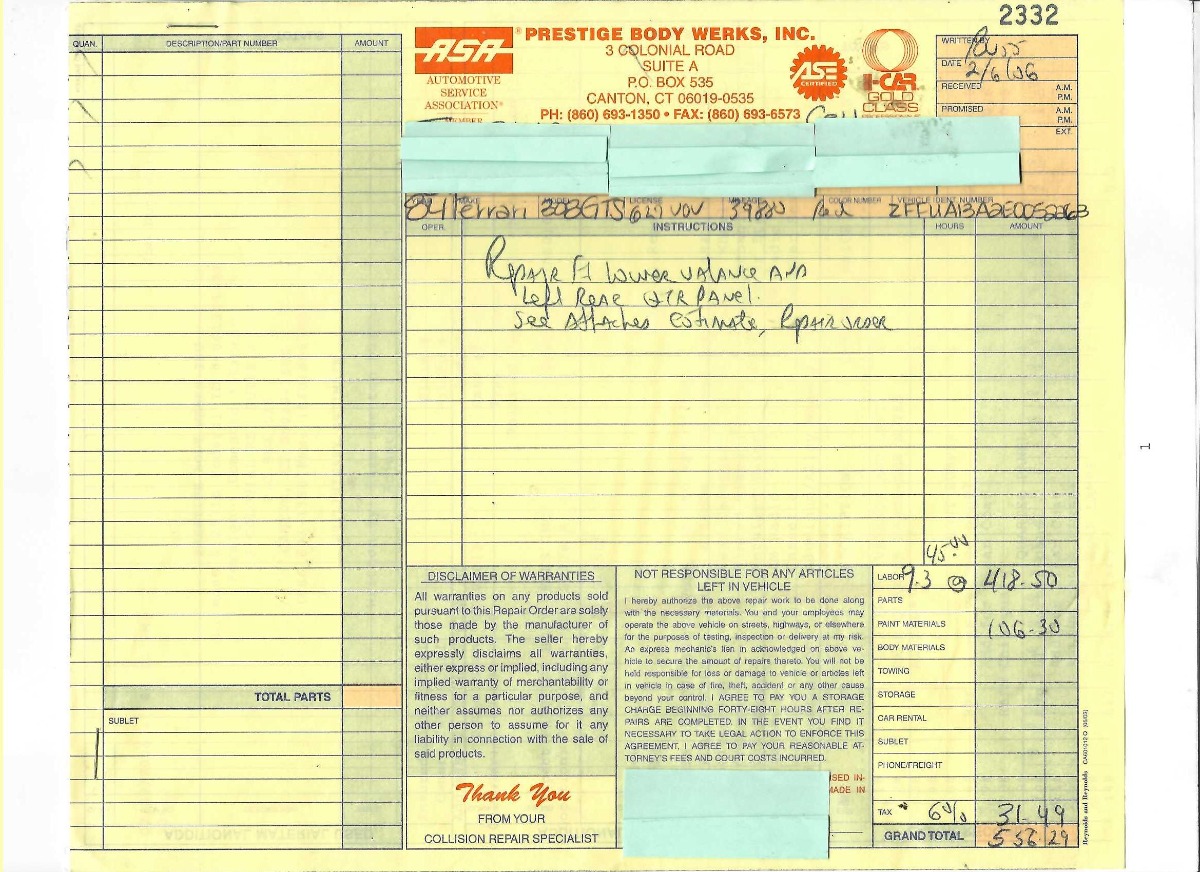 2332
QUAN. DESCRIPTION/PART NUMBER AMOUNT
ASA®
AUTOMOTIVE
SERVICE
ASSOCIATION®
MEMBER
PRESTIGE BODY WERKS, INC.
3 COLONIAL ROAD
SUITE A
P.O. BOX 535
CANTON, CT 06019-0535
PH: (860) 693-1350 • FAX: (860) 693-6573
ASE
CERTIFIED
I-CAR
GOLD
CLASS
WRITTEN BY Russ
DATE 2/6/06
RECEIVED A.M.
P.M.
PROMISED A.M.
P.M.
EXT.
YEAR MAKE MODEL LICENSE MILEAGE COLOR NUMBER VEHICLE IDENT NUMBER
84 Ferrari 308GTS 627 VOV 39880 Red
OPER. INSTRUCTIONS HOURS AMOUNT
Repair Ft lower valance AND
Left Rear QTR Panel.
See Attached Estimate, Repair order
45.00
LABOR 9.3 @ 418.50
PARTS
PAINT MATERIALS 106-30
BODY MATERIALS
TOWING
STORAGE
CAR RENTAL
SUBLET
PHONE/FREIGHT
TAX 6% 31-49
GRAND TOTAL 556 29
DISCLAIMER OF WARRANTIES
All warranties on any products sold
pursuant to this Repair Order are solely
those made by the manufacturer of
such products. The seller hereby
expressly disclaims all warranties,
either express or implied, including any
implied warranty of merchantability or
fitness for a particular purpose, and
neither assumes nor authorizes any
other person to assume for it any
liability in connection with the sale of
said products.
Thank You
FROM YOUR
COLLISION REPAIR SPECIALIST
NOT RESPONSIBLE FOR ANY ARTICLES
LEFT IN VEHICLE
I hereby authorize the above repair work to be done along
with the necessary materials. You and your employees may
operate the above vehicle on streets, highways, or elsewhere
for the purposes of testing, inspection or delivery at my risk.
An express mechanic's lien in acknowledged on above ve-
hicle to secure the amount of repairs thereto. You will not be
held responsible for loss or damage to vehicle or articles left
in vehicle in case of fire, theft, accident or any other cause
beyond your control. I AGREE TO PAY YOU A STORAGE
CHARGE BEGINNING FORTY-EIGHT HOURS AFTER RE-
PAIRS ARE COMPLETED. IN THE EVENT YOU FIND IT
NECESSARY TO TAKE LEGAL ACTION TO ENFORCE THIS
AGREEMENT, I AGREE TO PAY YOUR REASONABLE AT-
TORNEY'S FEES AND COURT COSTS INCURRED.
SED IN-
MADE IN
TOTAL PARTS
SUBLET
Reynolds and Reynolds
1